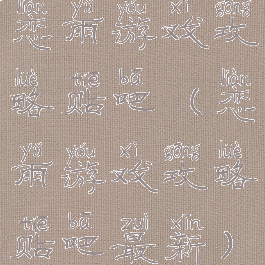 liàn yǔ yóu xì gōng
恋雨游戏攻
lüè tiē bā liàn
略贴吧（恋
yǔ yóu xì gōng lüè
雨游戏攻略
tiē bā zuì xīn
贴吧最新）